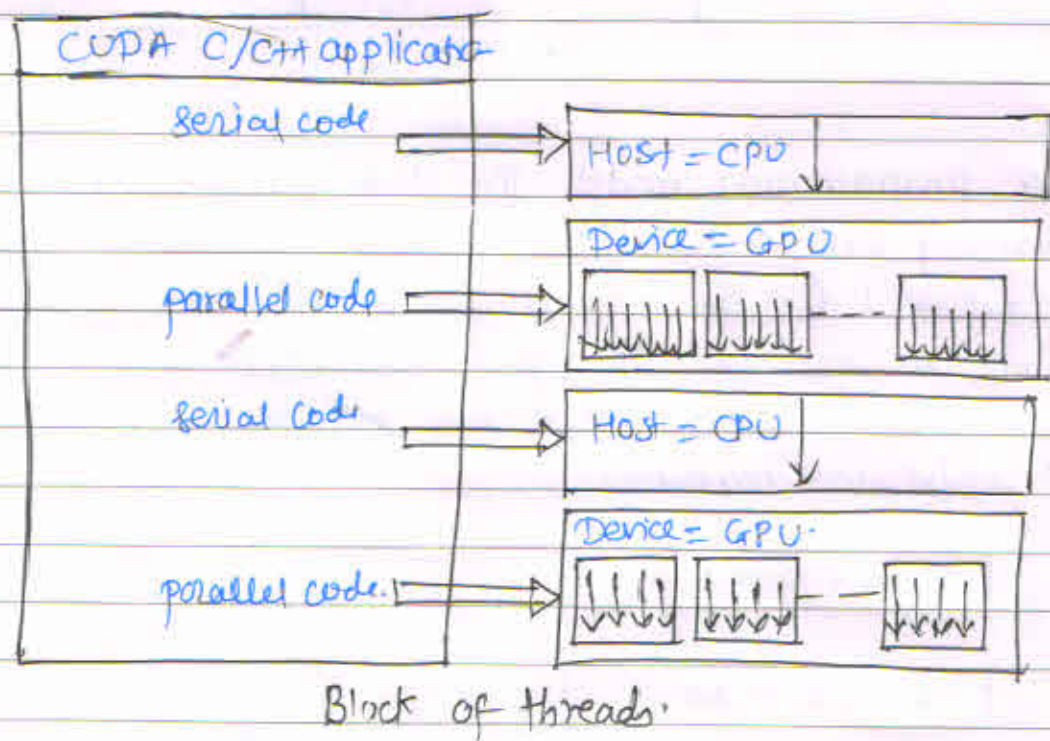 CUDA C/C++ application
serial code
Host = CPU
Device = GPU
parallel code
serial code
Host = CPU
Device = GPU.
parallel code.
Block of threads.